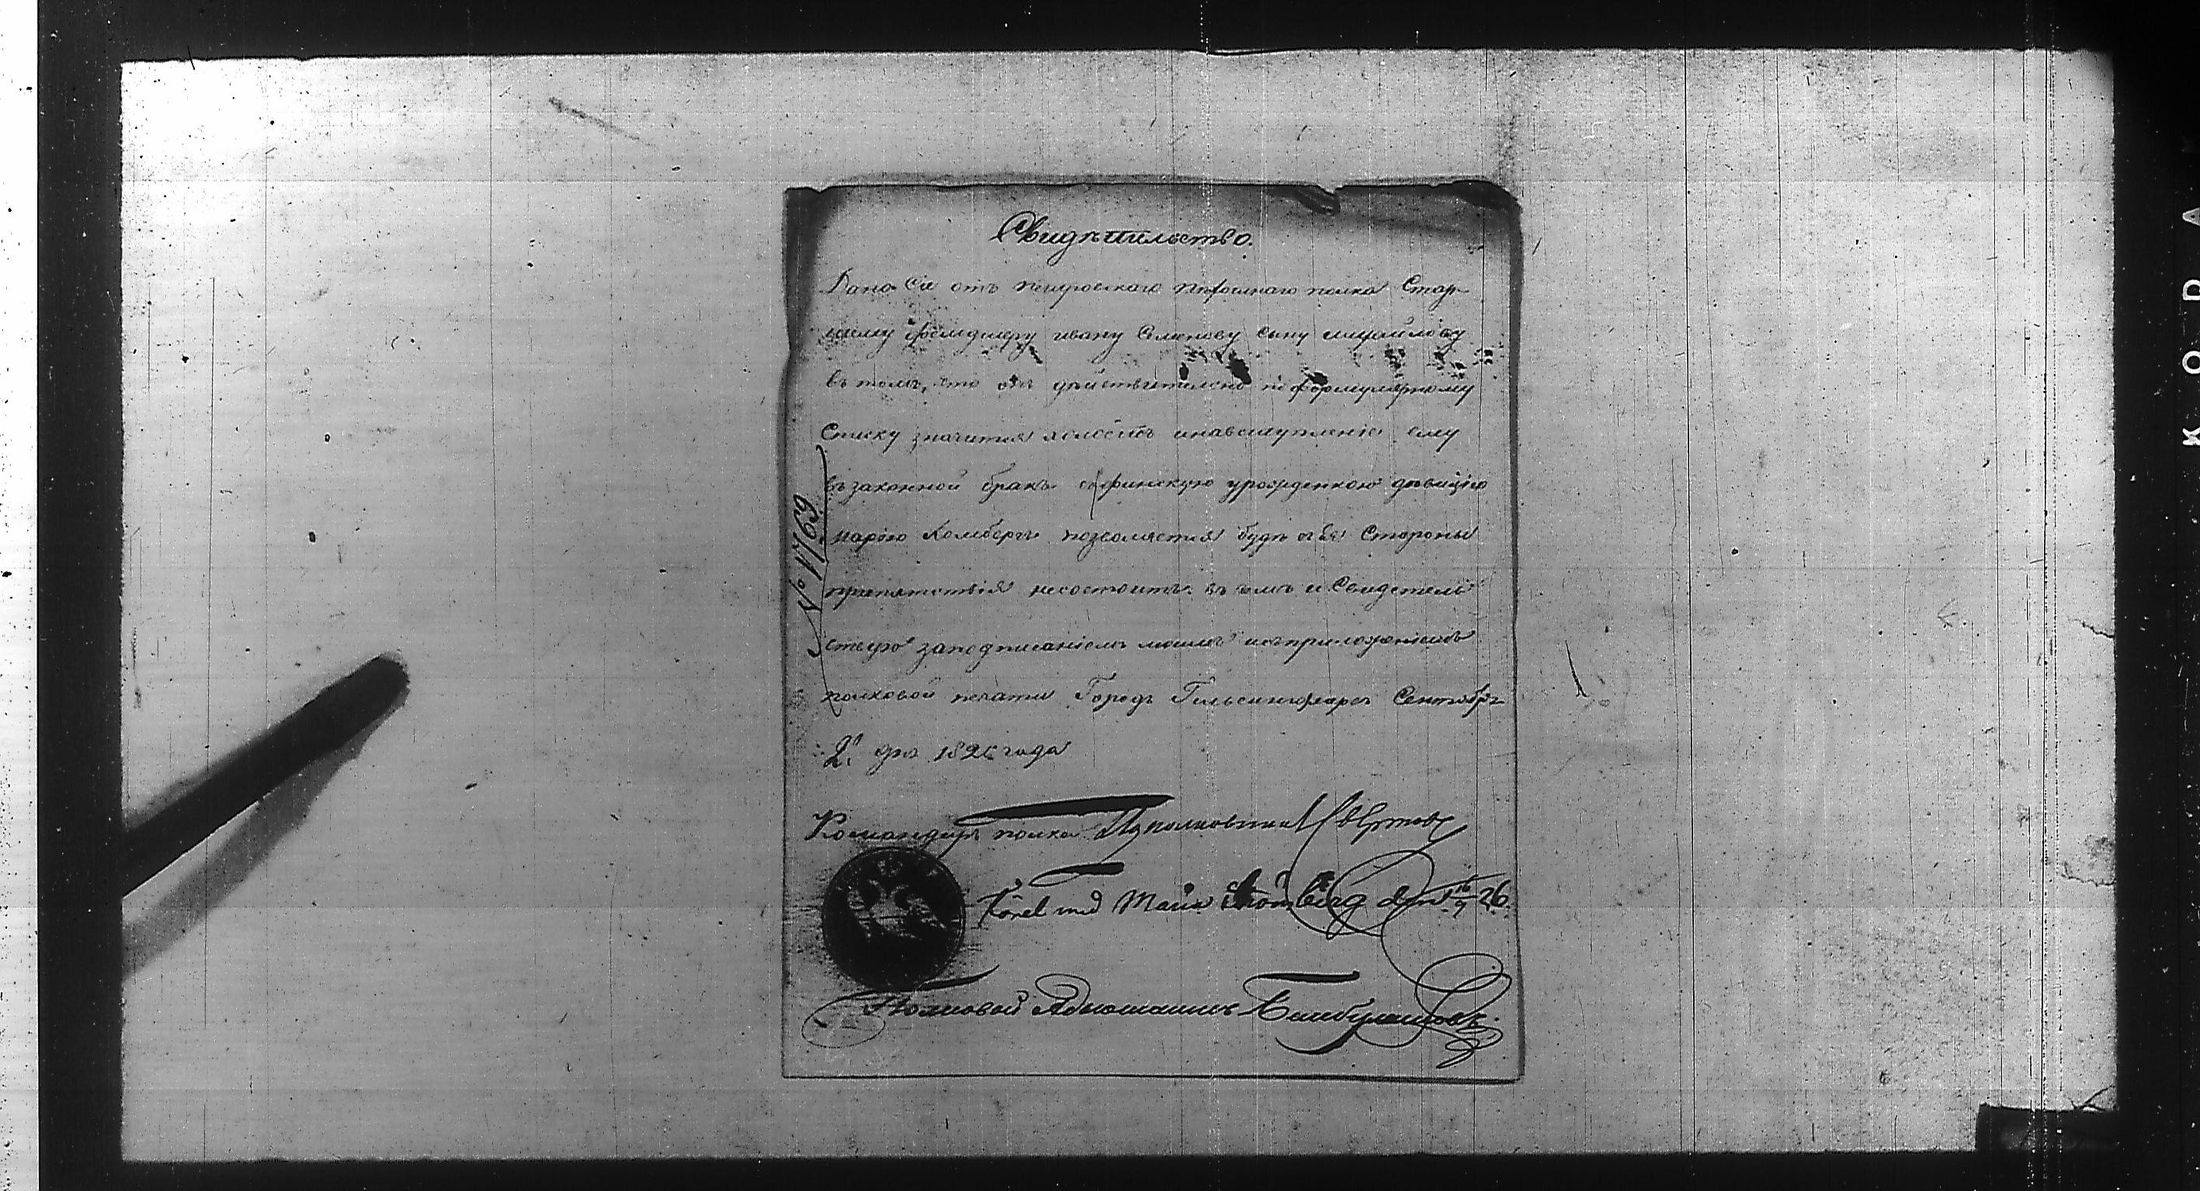 Свидѣтельство.
Дано Сіе отъ Петровскаго пѣхотнаго полка Стар-
шему фелдшеру ивану Семенову сыну михайлову
въ томъ, что онъ действително поформулярному
Списку значится холостъ инавступленіе ему
въ законной бракъ съ финскую урожденною девицею
марію Холмбергъ позволяется будѣ отъ Стороны
припятствія несостоитъ. въ чемъ и Свидетель
ствую заподписаніемъ моимъ исприложеніемъ
полковой печати Городъ Гельсингфорсъ Сентября
2. дня 1826 года
№ 1769
Командиръ полка Подполковникъ
und Maria den 16/9 26
Полковой Адъютантъ
K O D A K